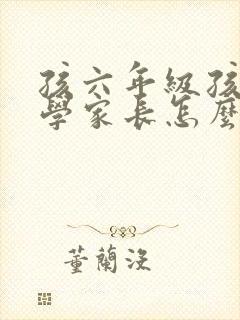 孩六年級孩
學家長怎麼
董蘭沒